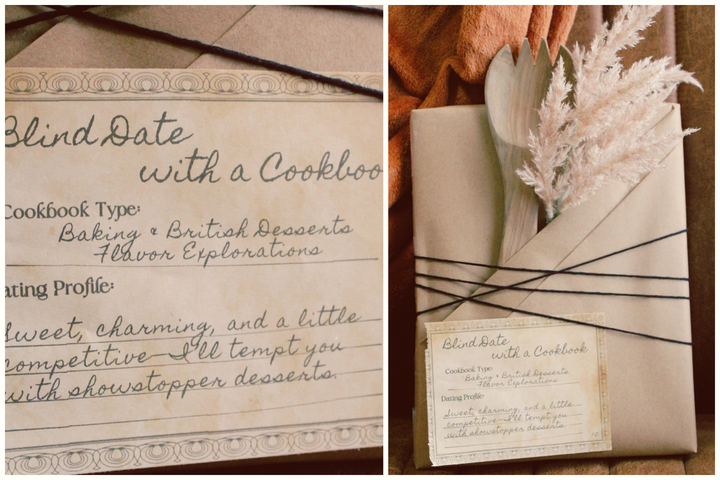 Blind Date
with a Cookboo
Cookbook Type:
Baking & British Desserts
Flavor Explorations
ating Profile:
Sweet, charming, and a little
competitive—I'll tempt you
with showstopper desserts.
Blind Date
with a Cookbook
Cookbook Type:
Baking & British Desserts
Flavor Explorations
Dating Profile:
Sweet, charming, and a little
competitive—I'll tempt you
with showstopper desserts